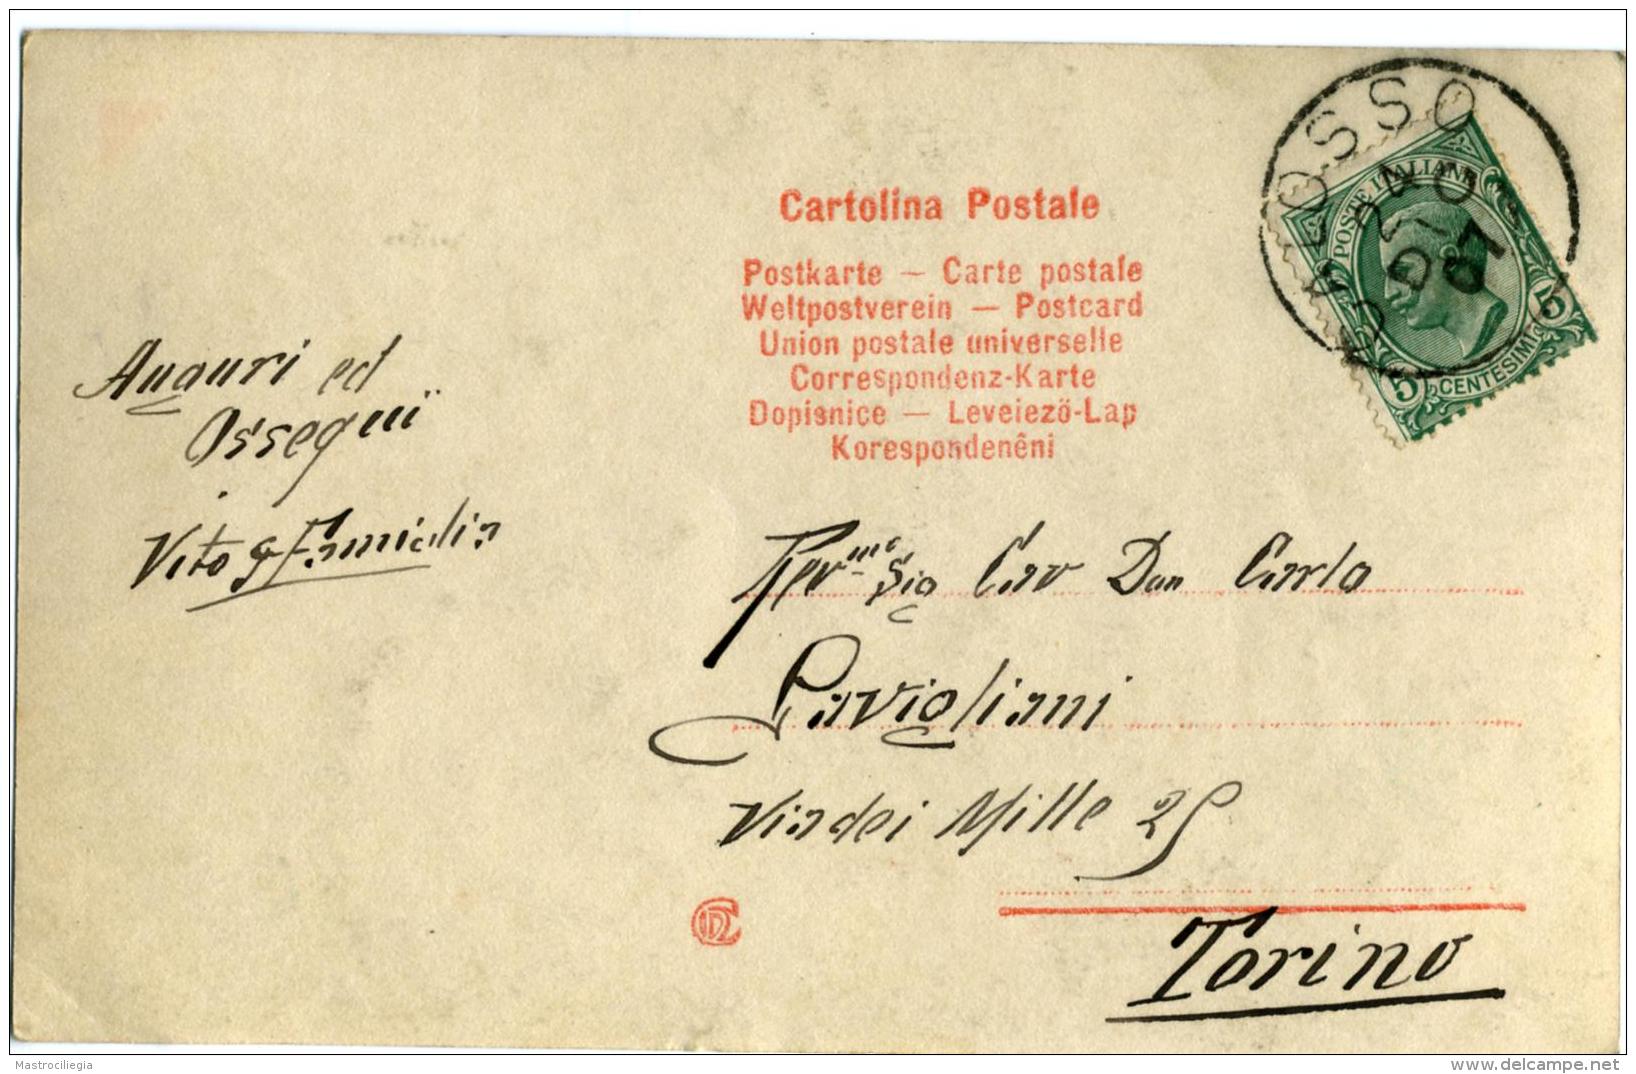 Cartolina Postale
Postkarte — Carte postale
Weltpostverein — Postcard
Union postale universelle
Correspondenz-Karte
Dopisnice — Leveiezö-Lap
Korespondenêni
POSTE ITALIANE
5 CENTESIMI 5
07
Auguri ed
Ossequii
Vito e Famiglia
Sig Cav Don Carlo
Cavigliani
Via dei Mille 25
Torino
Mastrociliegia
www.delcampe.net